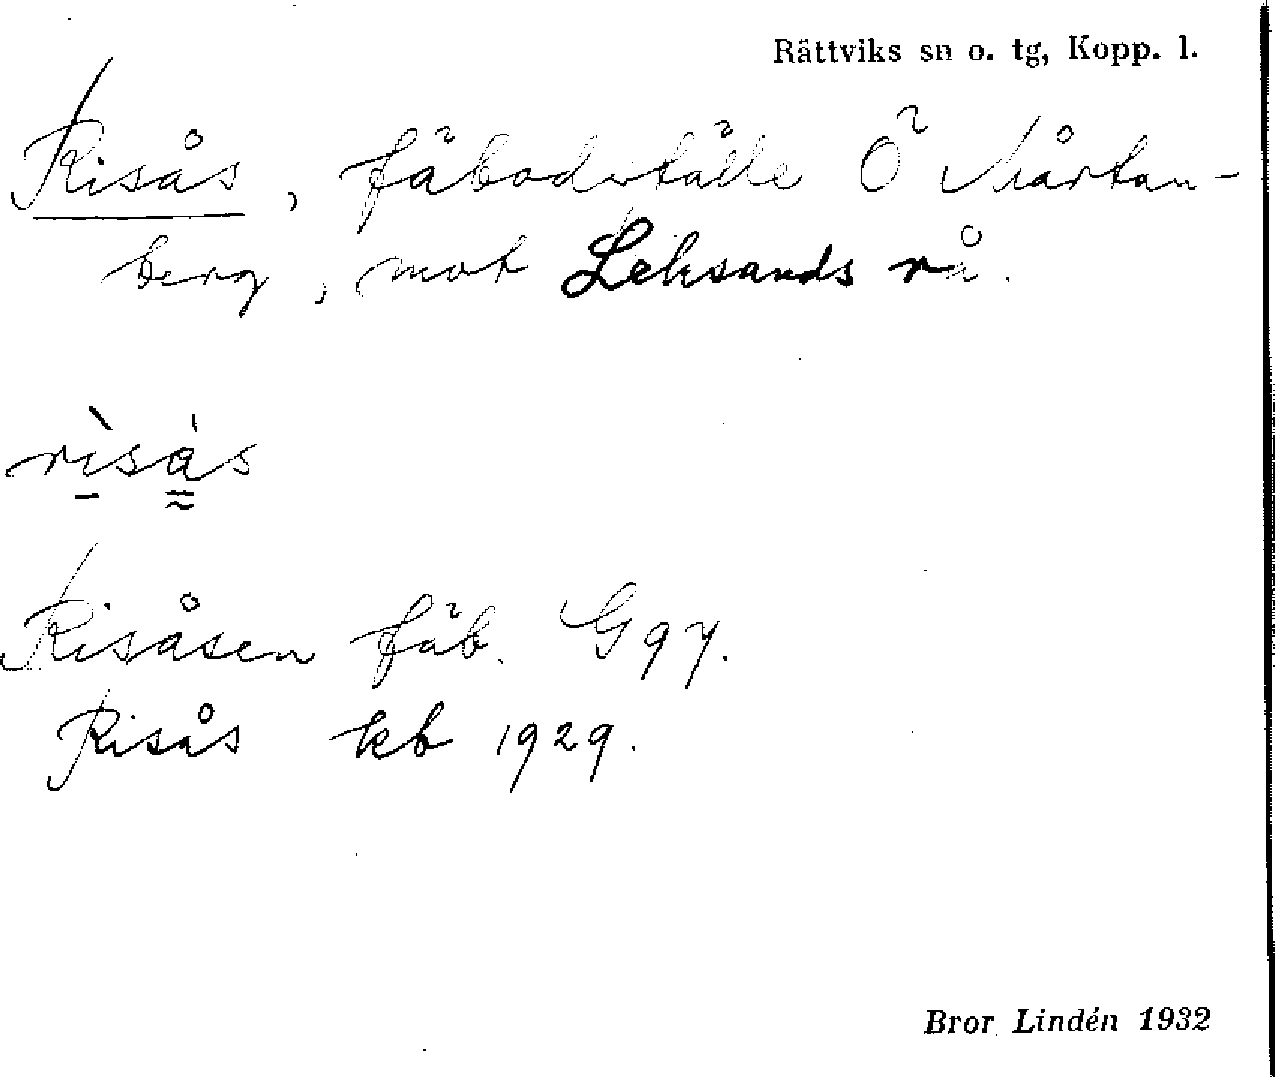 Rättviks sn o. tg, Kopp. l.
Risås, fäbodställe Ö Mårtan-
berg, mot Leksands rå.
rìsås
Risåsen fäb. G 97.
Risås kb 1929.
Bror Lindén 1932